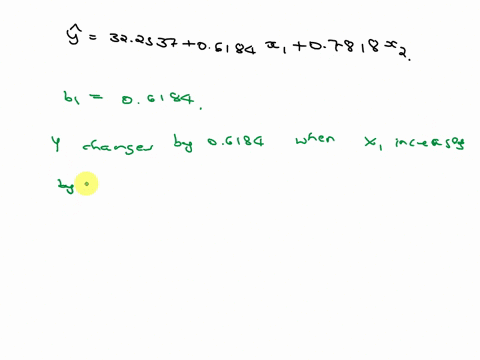 ŷ = 32.2537 + 0.6184 x₁ + 0.7818 x₂.
b₁ = 0.6184.
Y changes by 0.6184 when x₁ increases
by